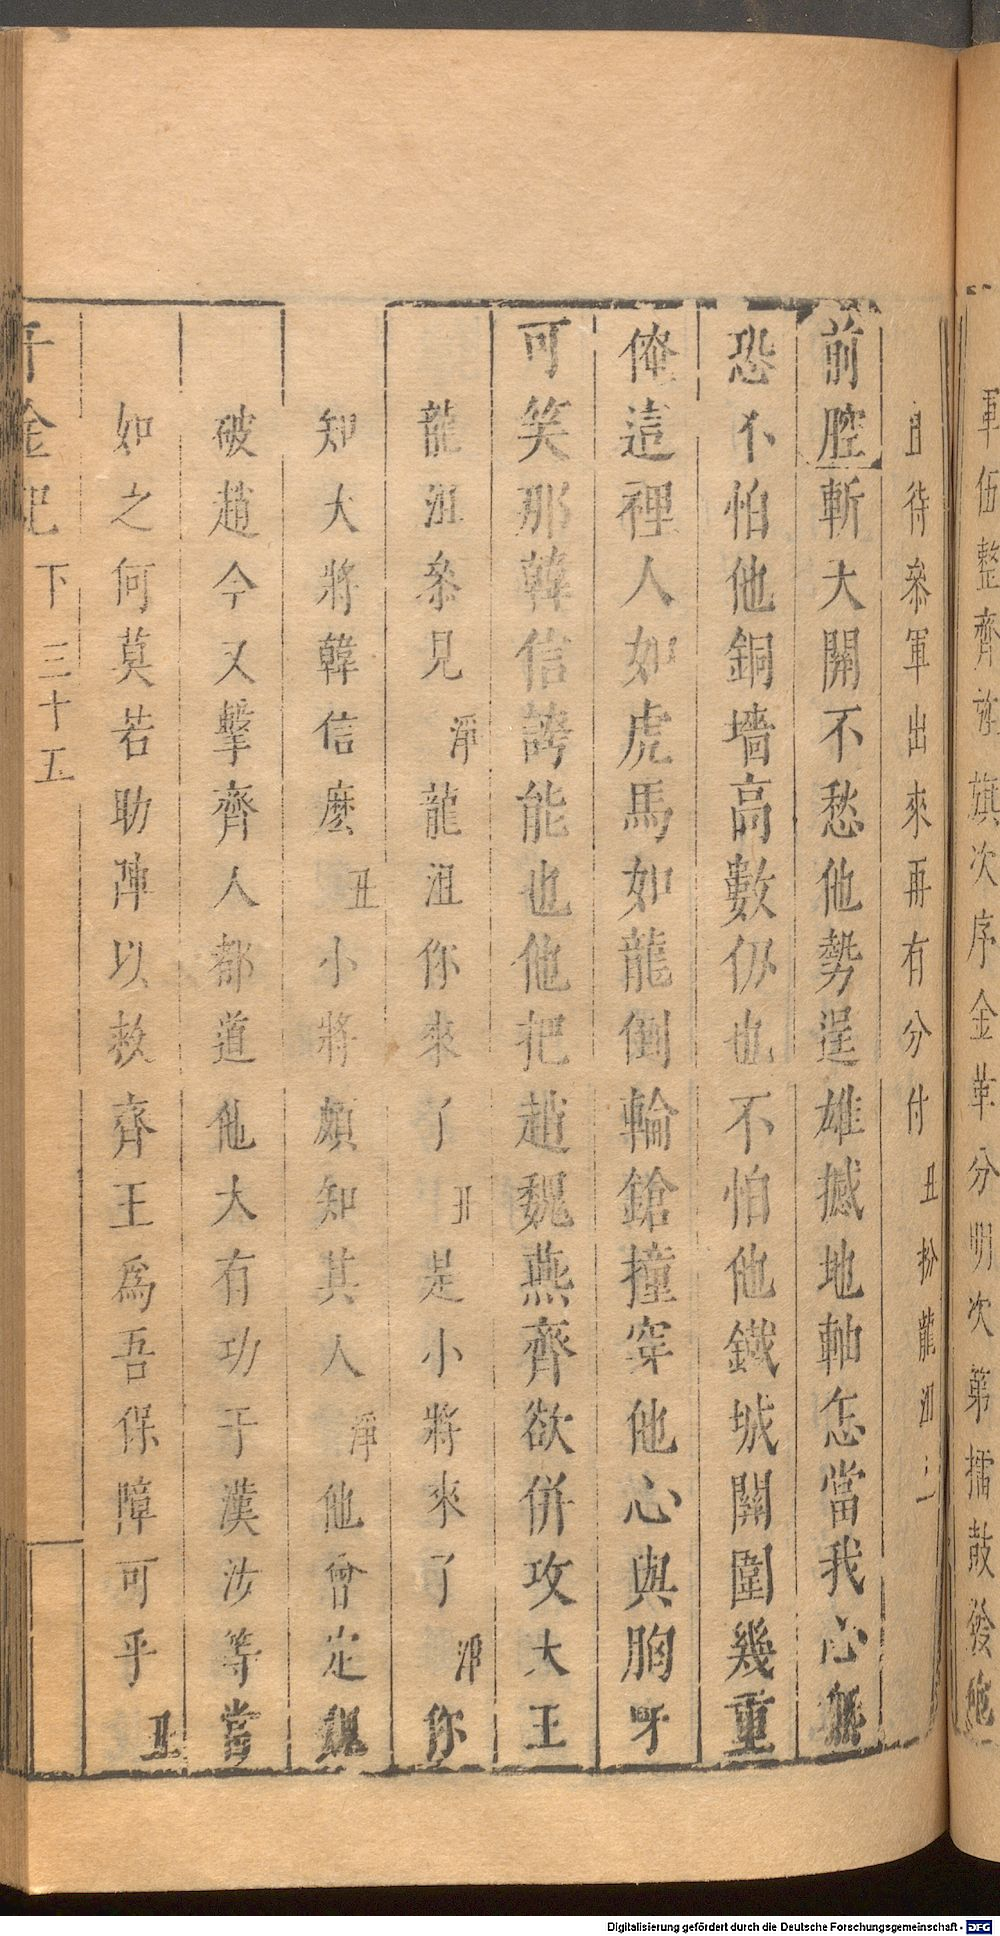 軍伍整齊旌旗次序金革分明次第擂鼓發他
且待參軍出來再有分付 丑扮龍沮上
前腔斬大開不愁他勢逞雄撼地軸怎當我心無
恐不怕他銅墻高數仞也不怕他鐵城關圍幾重
俺這裡人如虎馬如龍倒輪鎗撞穿他心與胸呀
可笑那韓信誇能也他把趙魏燕齊欲併攻大王
龍沮叅見 淨龍沮你來了 丑是小將來了 淨你
知大將韓信麼 丑小將頗知其人 淨他曾定魏
破趙今又擊齊人都道他大有功于漢汝等當
如之何莫若助陣以救齊王爲吾保障可乎 丑
千金記 下 三十五
Digitalisierung gefördert durch die Deutsche Forschungsgemeinschaft - DFG